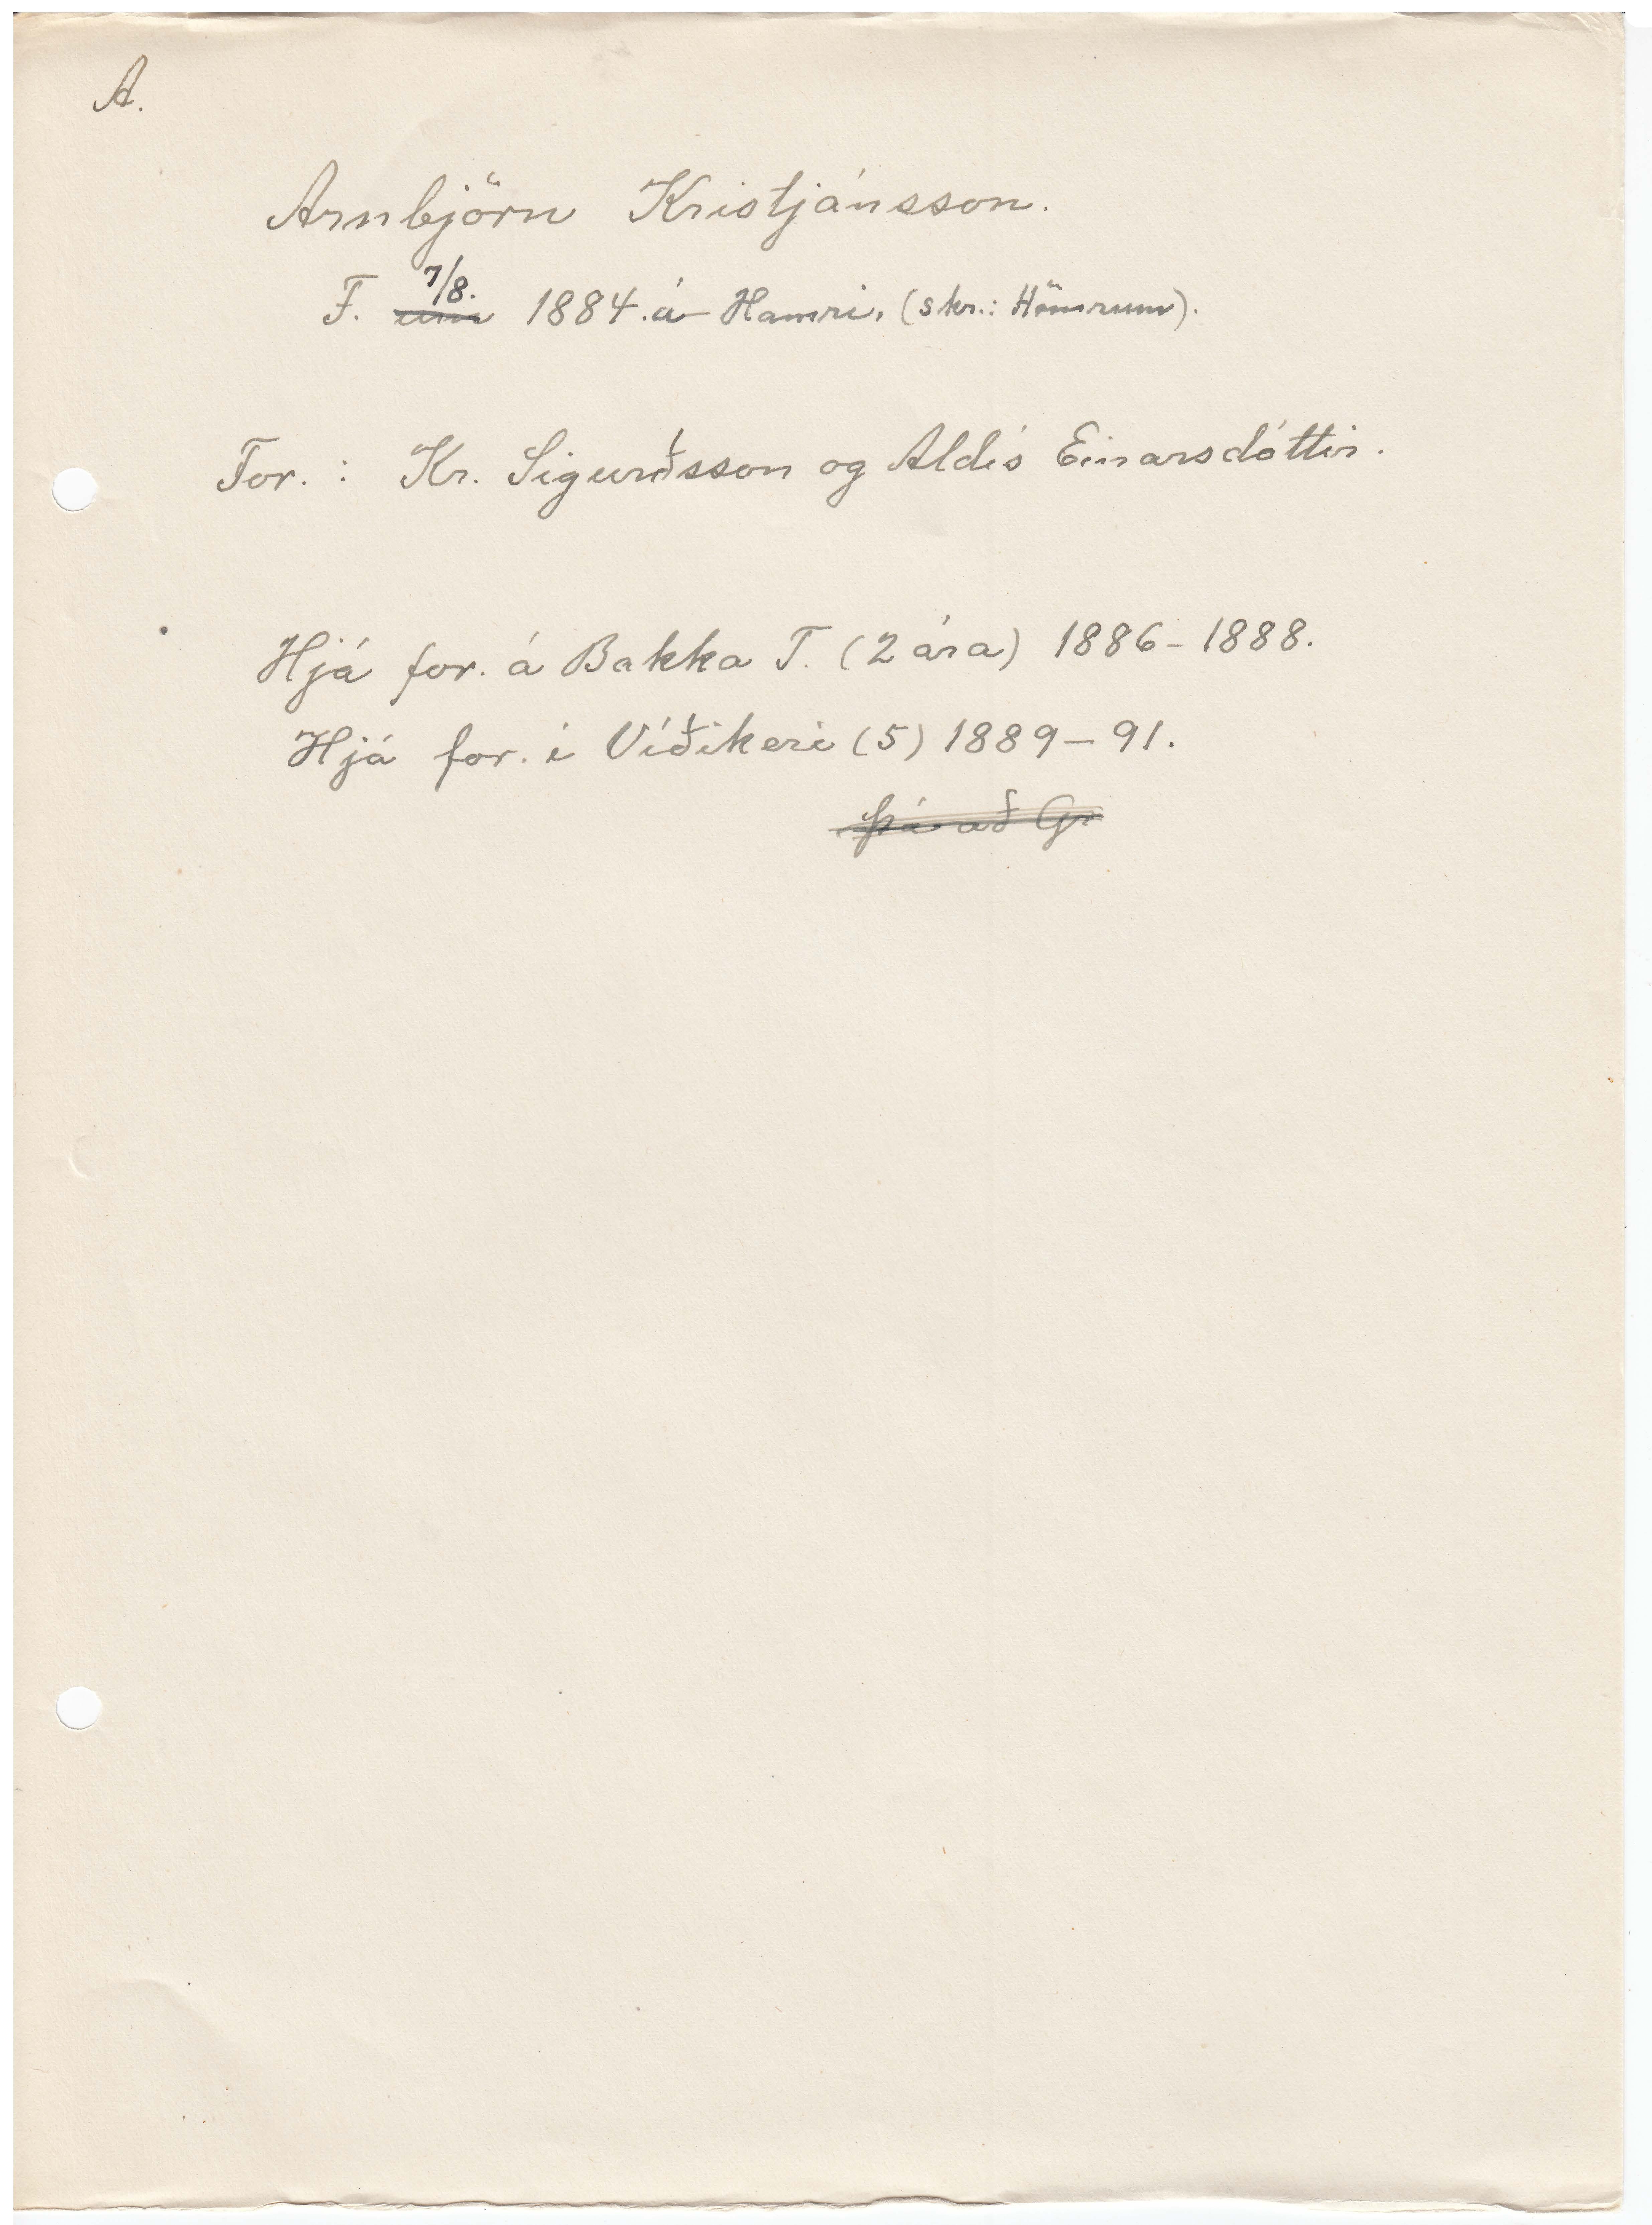 A.
Arnbjörn Kristjánsson.
F. um 7/8. 1884. á Hamri, (skr.: Hömrum).
For. : Kr. Sigurðsson og Aldís Einarsdóttir.
Hjá for. á Bakka T. (2 ára) 1886-1888.
Hjá for. í Víðikeri (5) 1889-91.
Þá að Gr